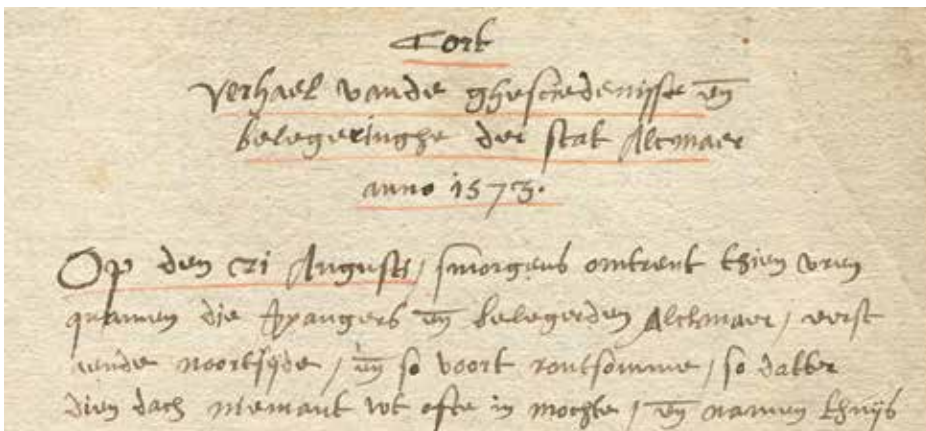 Cort
verhael vande ghesciedenisse en̄
belegeringhe der stat Alcmaer
anno 1573.
Op den xxi Augusti / smorgens omtrent thien vren
quamen die spangers en̄ belegerden Alckmaer / eerst
aende noortsijde / en̄ so voort rontsomme / so datter
dien dach niemant wt ofte in mochte / en̄ namen thuijs